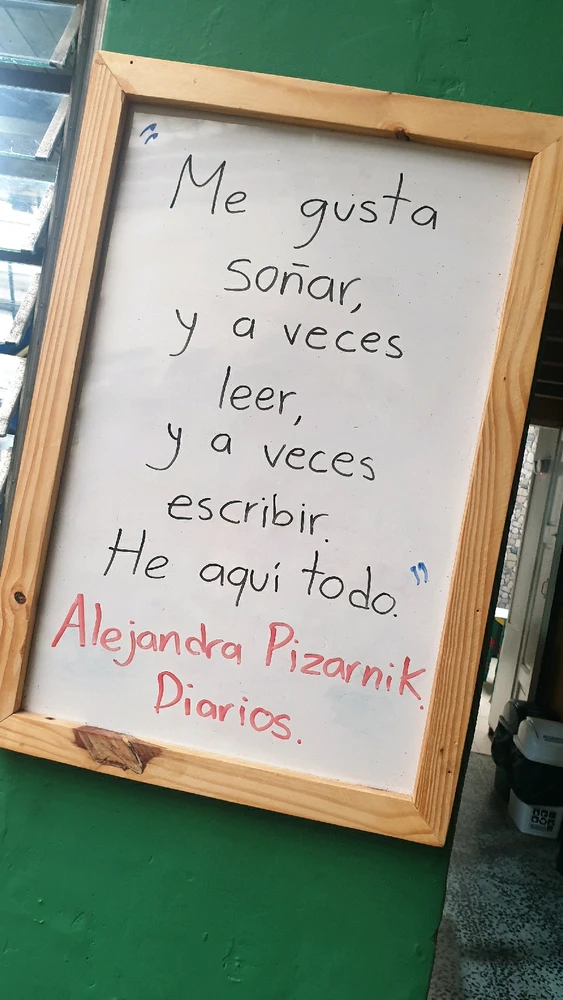 "Me gusta
soñar,
y a veces
leer,
y a veces
escribir.
He aquí todo."
Alejandra Pizarnik.
Diarios.